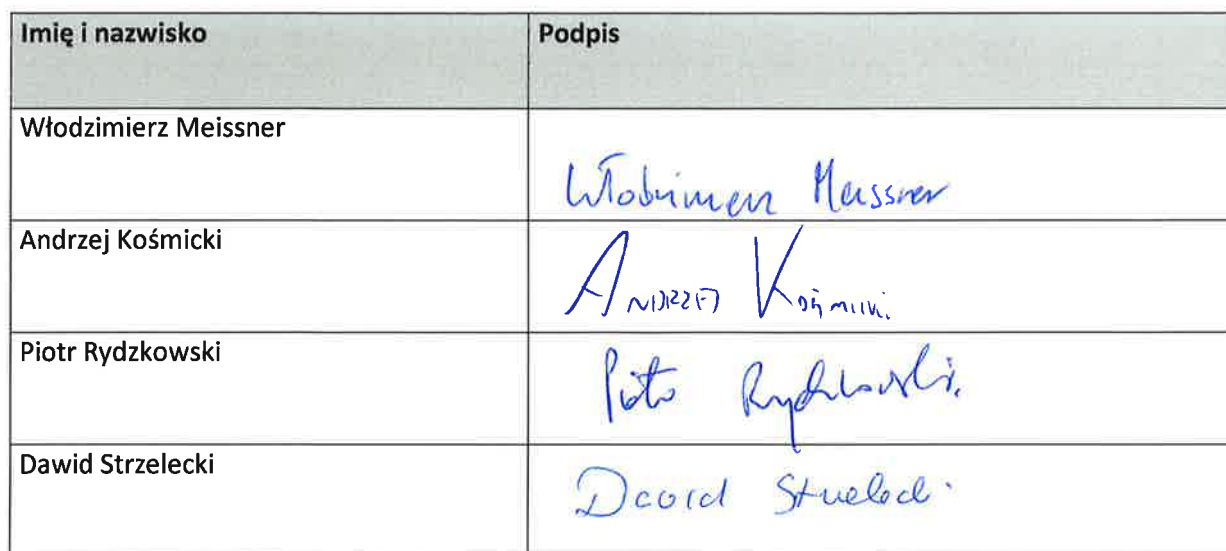 Imię i nazwisko Podpis
Włodzimierz Meissner
Włodzimierz Meissner
Andrzej Kośmicki
Andrzej Kośmicki
Piotr Rydzkowski
Piotr Rydzkowski
Dawid Strzelecki
Dawid Strzelecki